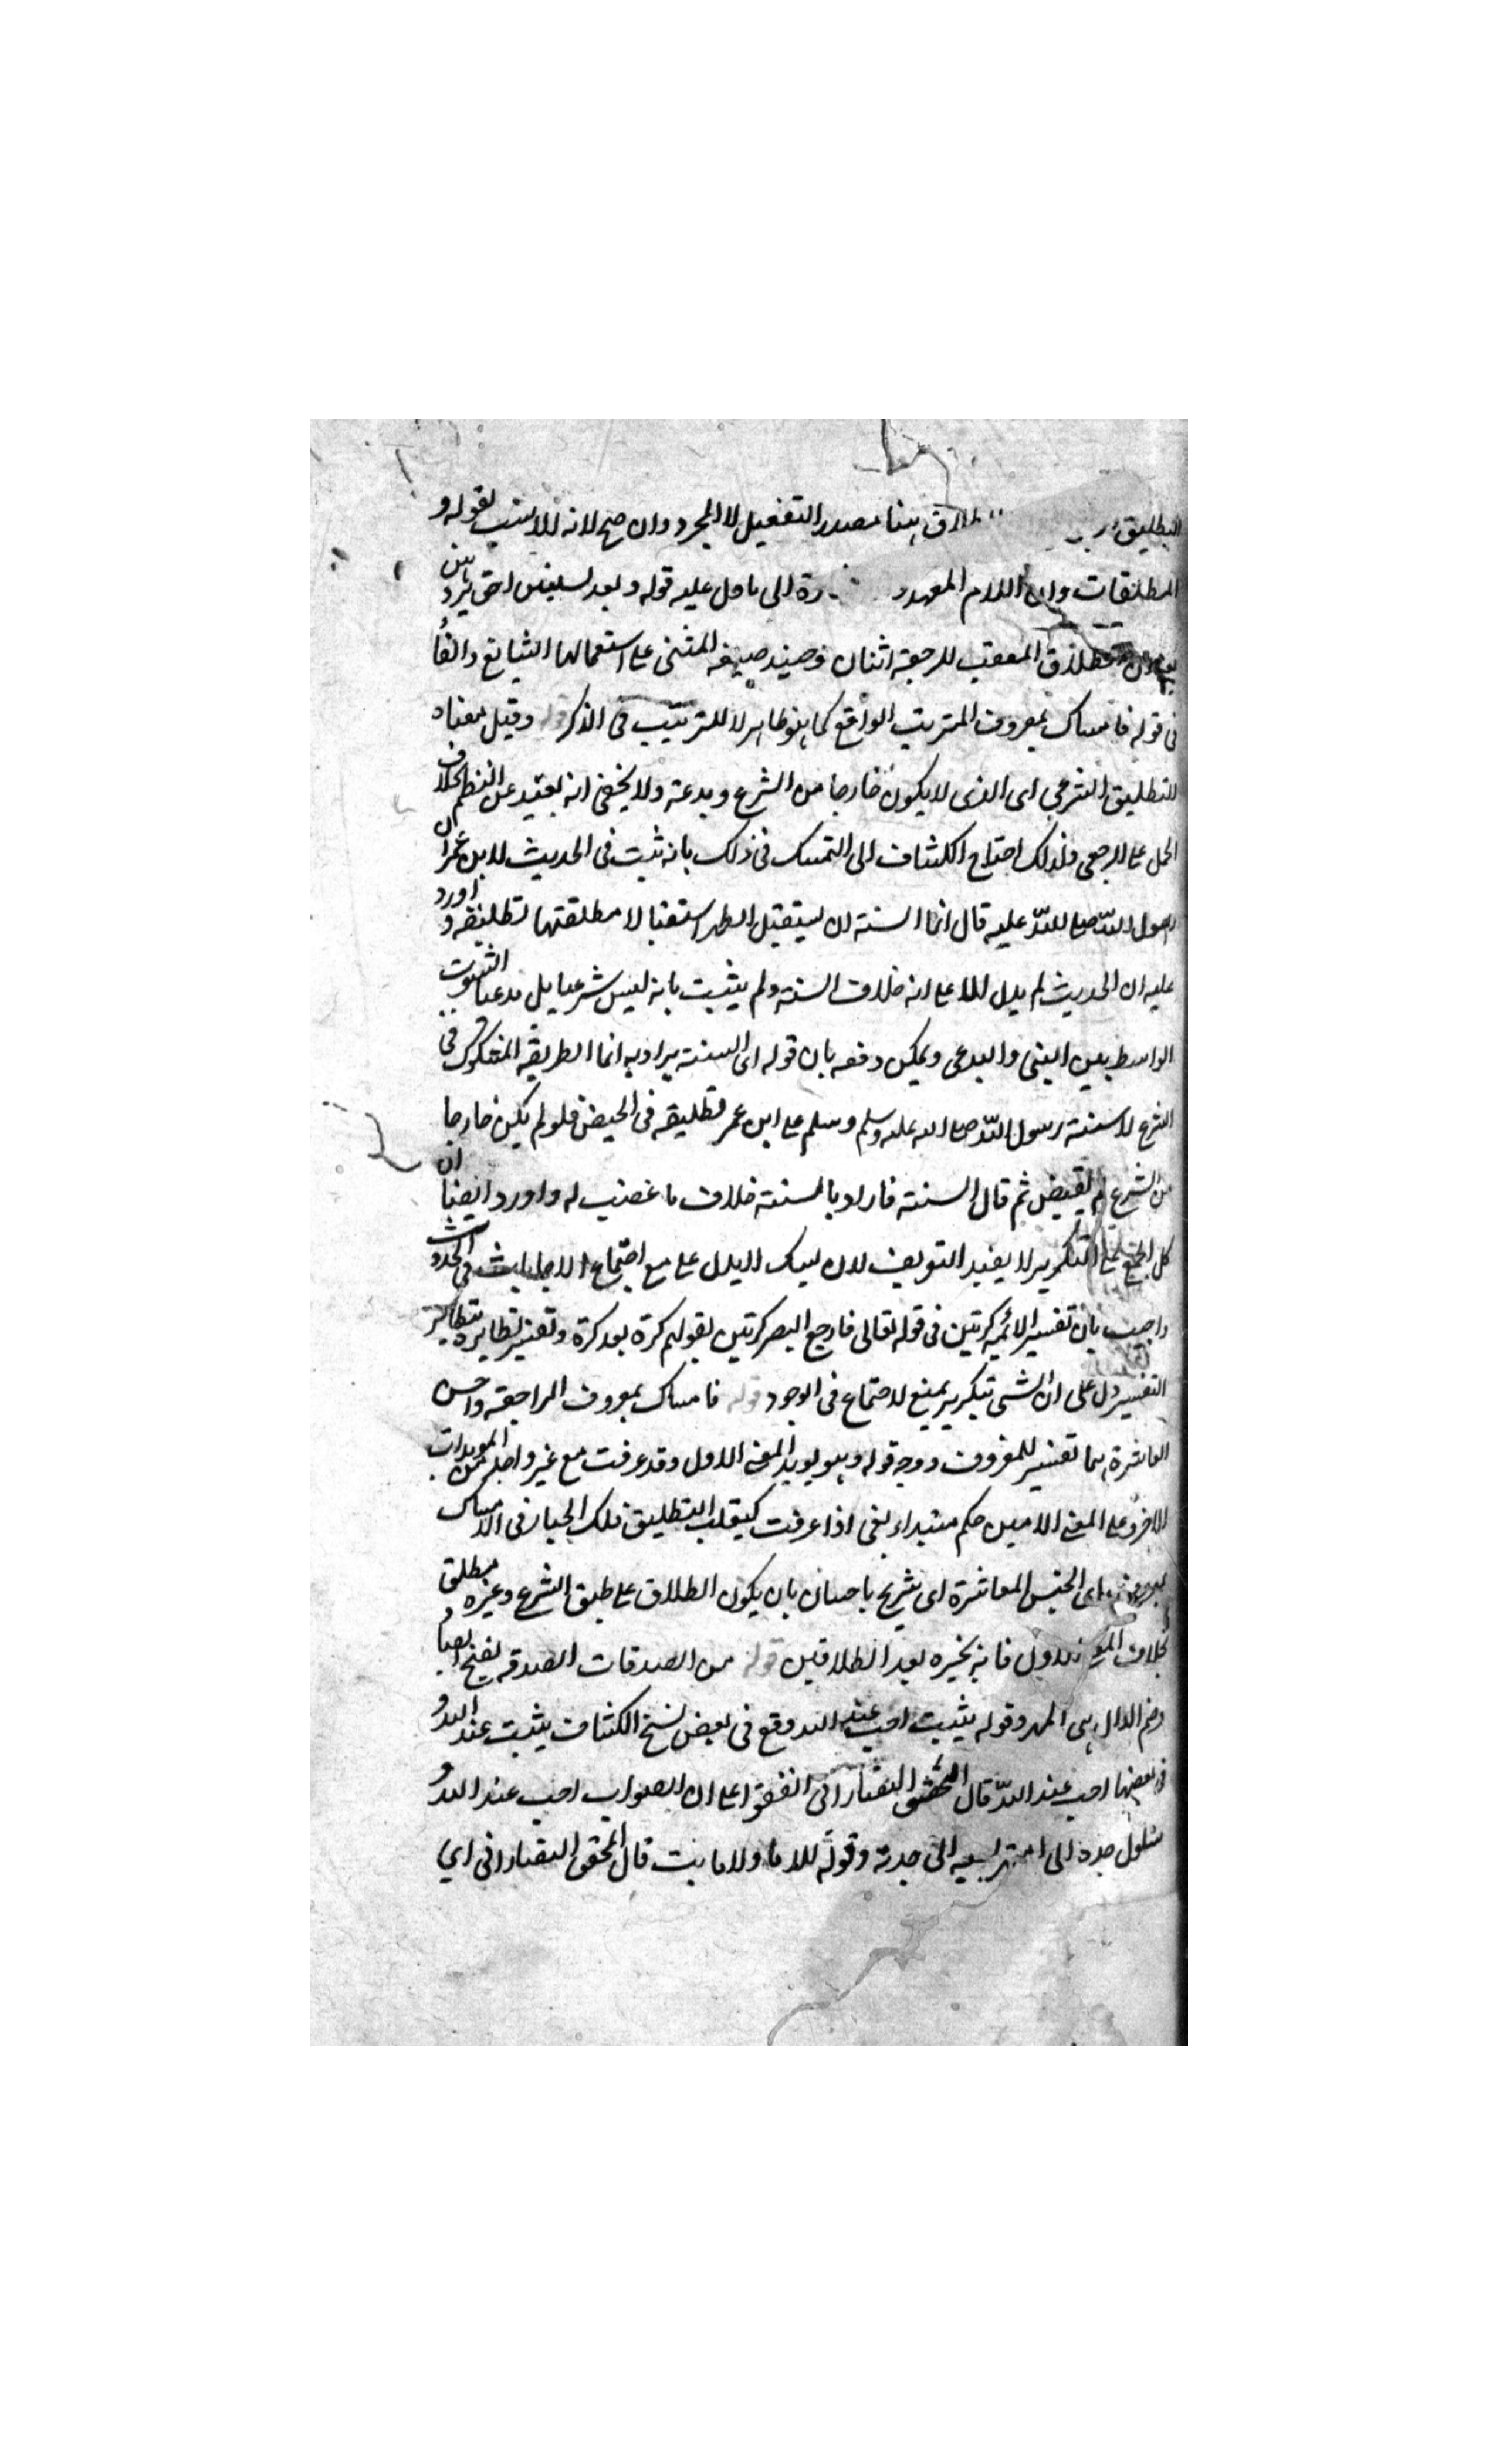 التطليق طلاق هنا مصدر التفعيل لا المجرد وان صح لانه الانسب لقوله و
المطلقات وان اللام المعهد رة الى ما دل عليه قوله وبعولتهن احق بردهن
الطلاق المعقب للرجعة اثنان فحينئذ صيغة المثنى على استعمالها الشايع والفا
فى قوله فامساك بمعروف المترتب الواقع كما هو ظاهر لا للترتيب فى الذكر قوله وقيل معناه
التطليق الشرعي اى الذى لا يكون خارجا من الشرع وبدعة ولا يخفى انه بعيد عن النظم بخلاف
الحمل على الرجعي ولذلك احتاج الكشاف الى التمسك فى ذلك بانه ثبت فى الحديث لابن عمر ان
رسول الله صلى الله عليه قال انما السنة ان يستقبل الطهر استقبالا مطلقتها تطليقة واورد
عليه ان الحديث لم يدل الا على انه خلاف السنة ولم يثبت بانه ليس شرعيا بل بدعيا لثبوت
الواسط بين السنى والبدعى ويمكن دفعه بان قوله اى السنة يراد به انما الطريقة المسلوكة فى
الشرع لا سنة رسول الله صلى الله عليه وسلم وسلم على ابن عمر تطليقه فى الحيض فلو لم يكن خارجا
من الشرع لم يغيض ثم قال السنة فاراد بالسنة خلاف ما غضب له واورد ايضا ان
كل الجمع على التكرير لا يفيد التفريق لان لبيك اليدل على مع اجتماع الاجابات فى الحدوث
واجيب بان تفسير الائمة كرتين فى قوله تعالى فارجع البصر كرتين بقولهم كرة بعد كرة وتفسير نظايره بنظاير
التفسير دل على ان الشى بتكرير يمنع الاجتماع فى الوجود قوله فامساك بمعروف المراجعة واحسن
المعاشرة بما تفسير للمعروف ووجه قوله وهو يويد المعنى الاول وقد عرفت مع غير واحد من المويدات
الاخر وعلى المعنى الاخير حكم مبتداء يغى اذا عرفت كيفية التطليق فلك الخيار فى الامساك
بمعروف اى الحسن المعاشرة اى تسريح باحسان بان يكون الطلاق على طبق الشرع وغيره مطلق
بخلاف الاول فانه يخيره بعد الطلاقين قوله من الصدقات الصدقة بفتح الصاد
وضم الدال هى المهر وقوله يثبت احب عند الله وقع فى بعض نسخ الكشاف يثبت عند الله و
فى بعضها احب عند الله قال المحقق التفتازانى اتفقوا على ان الصواب احب عند الله و
سلول جده الى اشتهر ابيه الى جدته وقوله لا انا ولا ثابت قال المحقق التفتازانى اي